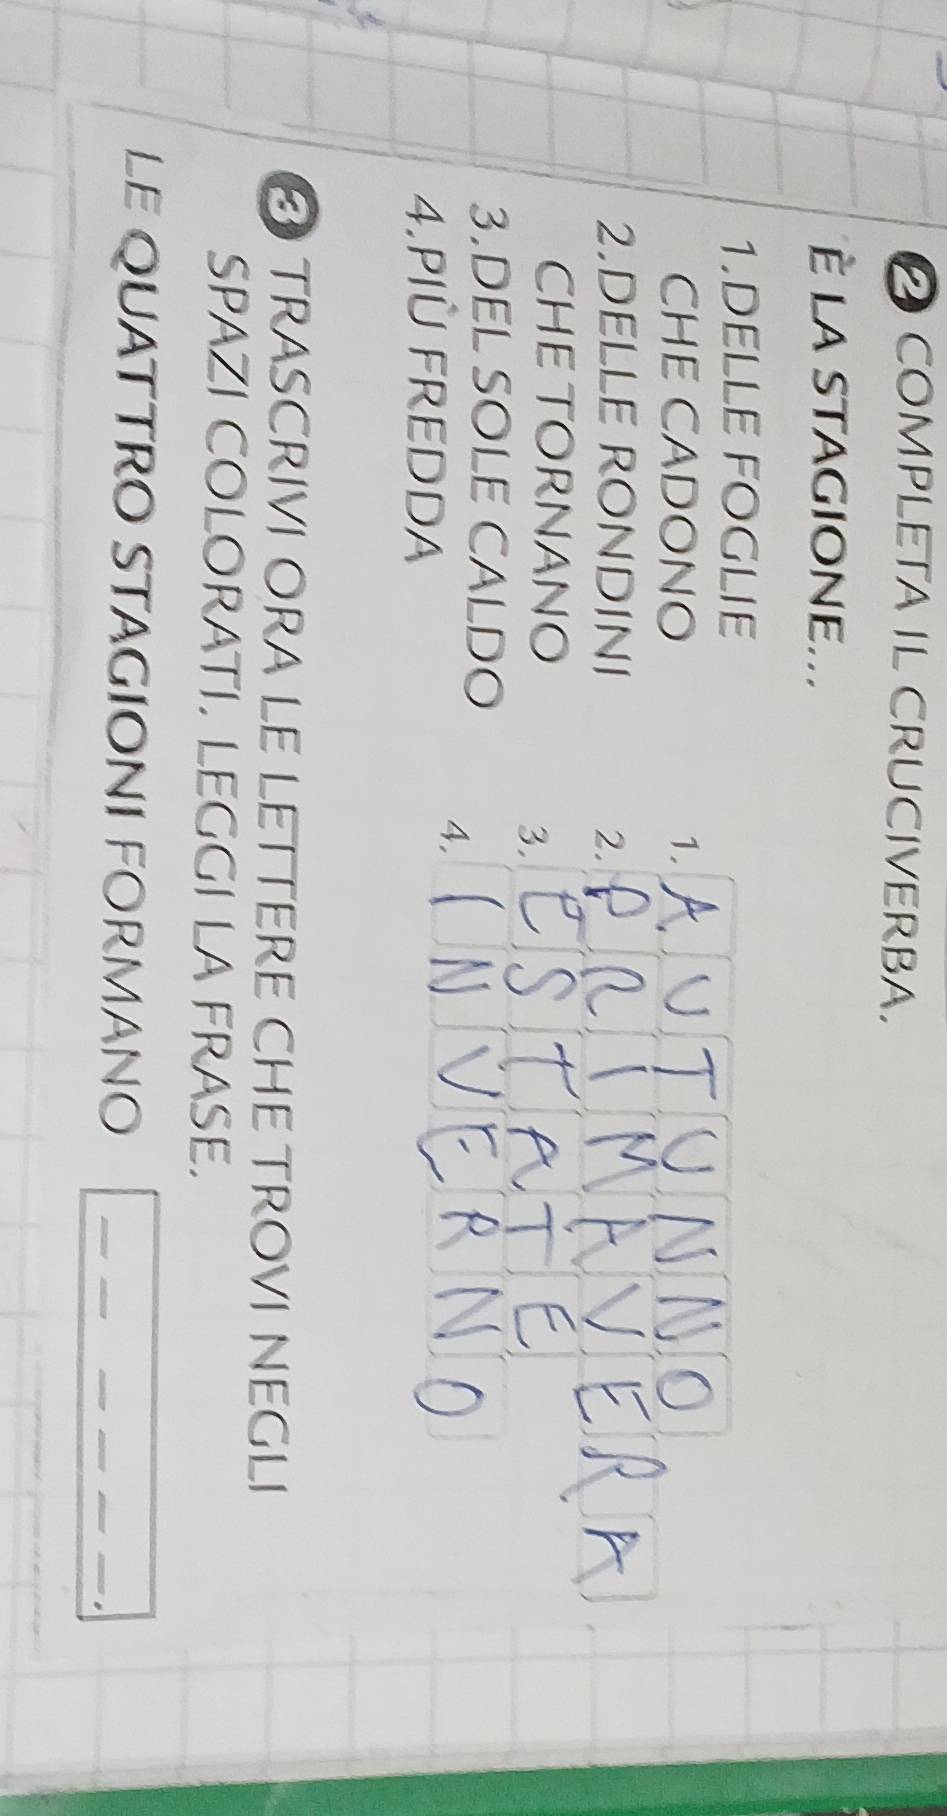 2 COMPLETA IL CRUCIVERBA.
È LA STAGIONE...
1.DELLE FOGLIE
CHE CADONO
2.DELLE RONDINI
CHE TORNANO
3.DEL SOLE CALDO
4.PIÙ FREDDA
1. AUTUNNO
2. PRIMAVERA
3. ESTATE
4. INVERNO
3 TRASCRIVI ORA LE LETTERE CHE TROVI NEGLI
SPAZI COLORATI. LEGGI LA FRASE.
LE QUATTRO STAGIONI FORMANO _ _ _ _ _ _.